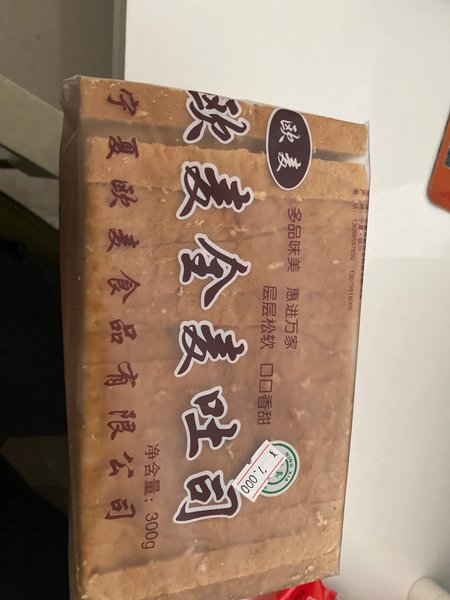 欧麦
欧麦全麦吐司
多品味美 惠进万家
层层松软 口口香甜
宁夏欧麦食品有限公司
净含量：300g
¥7.000